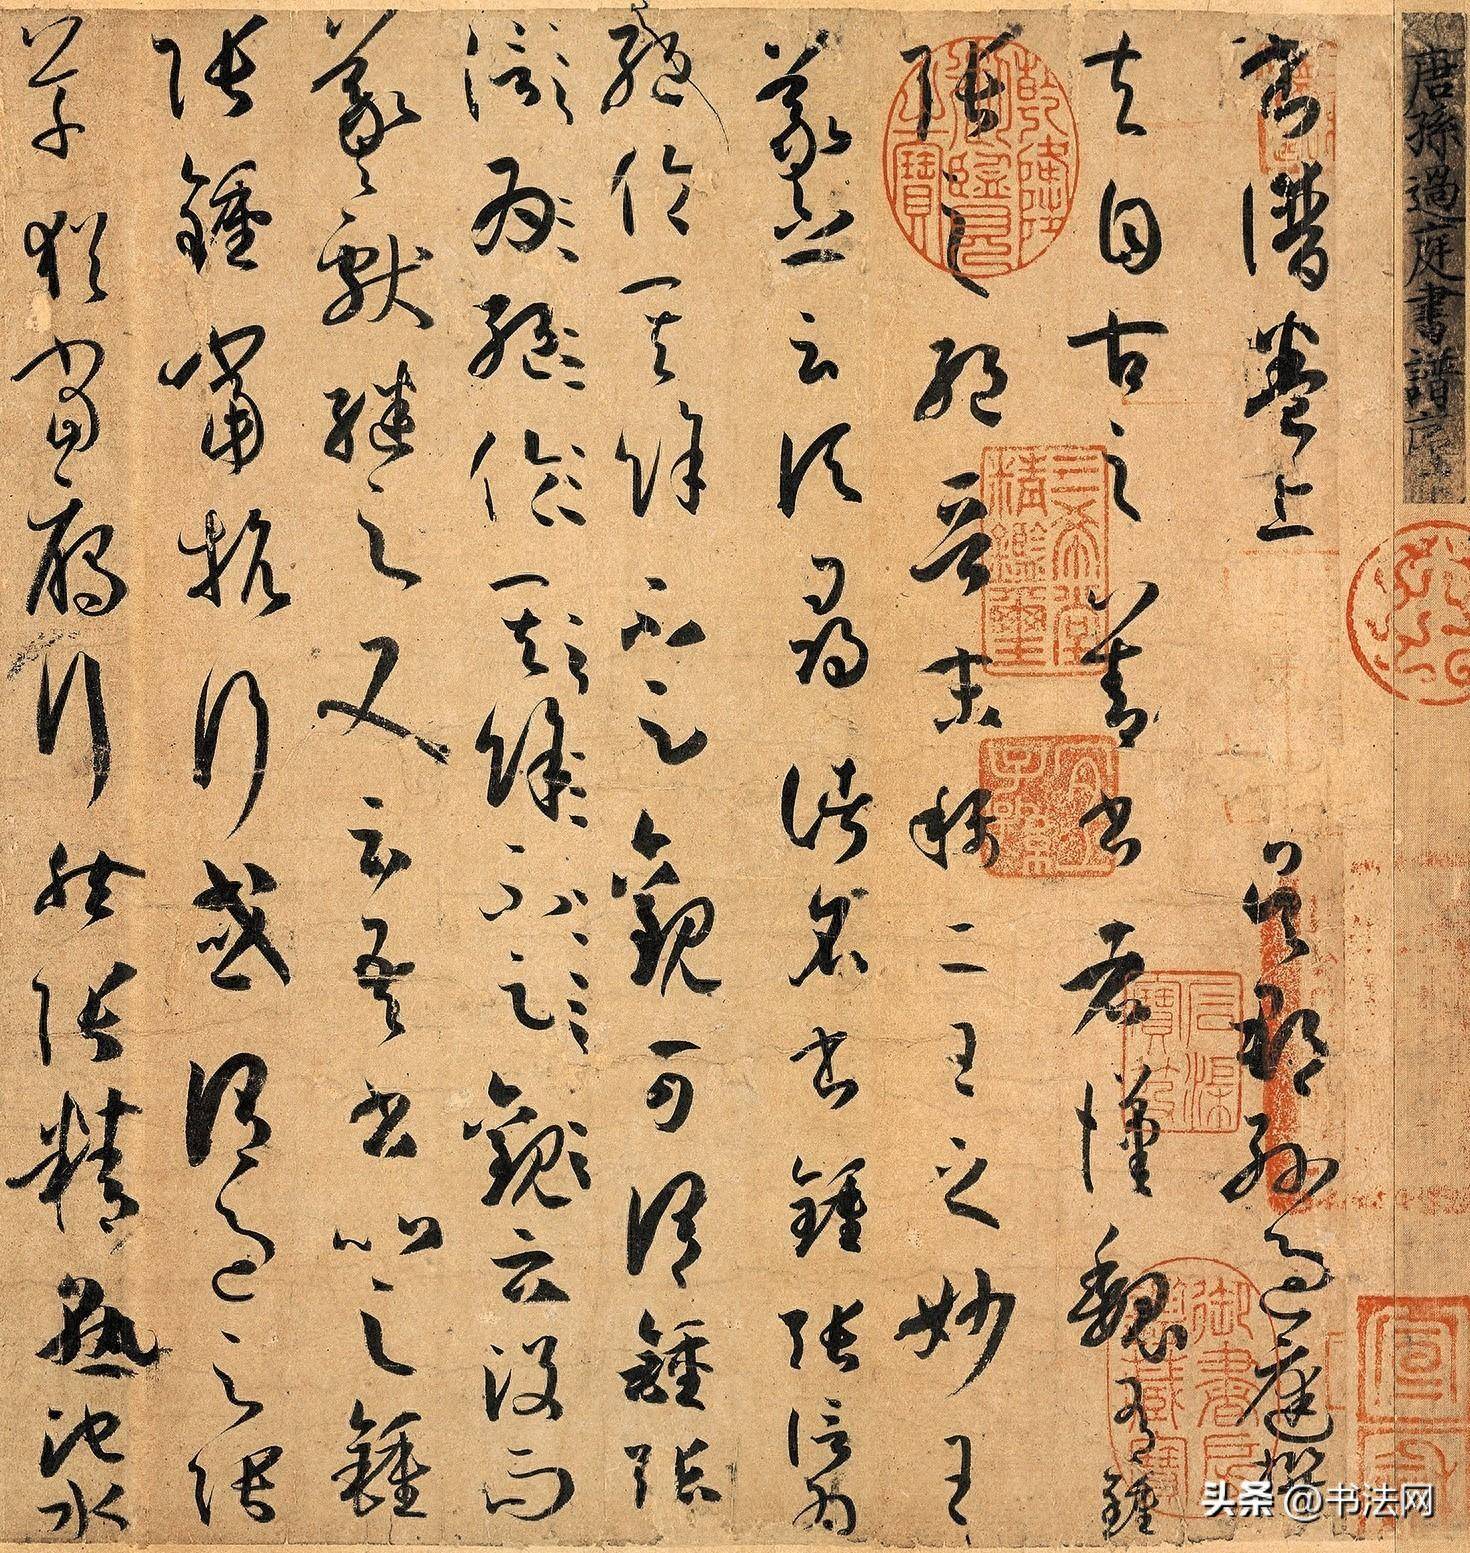 唐孫過庭書譜序
書譜卷上 吳郡孫過庭撰
夫自古之善書者漢魏有鍾
張之絕晉末稱二王之妙王
羲之云頃尋諸名書鍾張信為
絕倫其餘不足觀可謂鍾張
信為絕倫其餘不足觀云沒而
羲獻繼之又云吾書比之鍾
張鍾當抗行或謂過之張
草猶當鴈行然張精熟池水
乾隆御覽之寶
三希堂精鑑璽
宜子孫
石渠寶笈
宣和
头条 @书法网